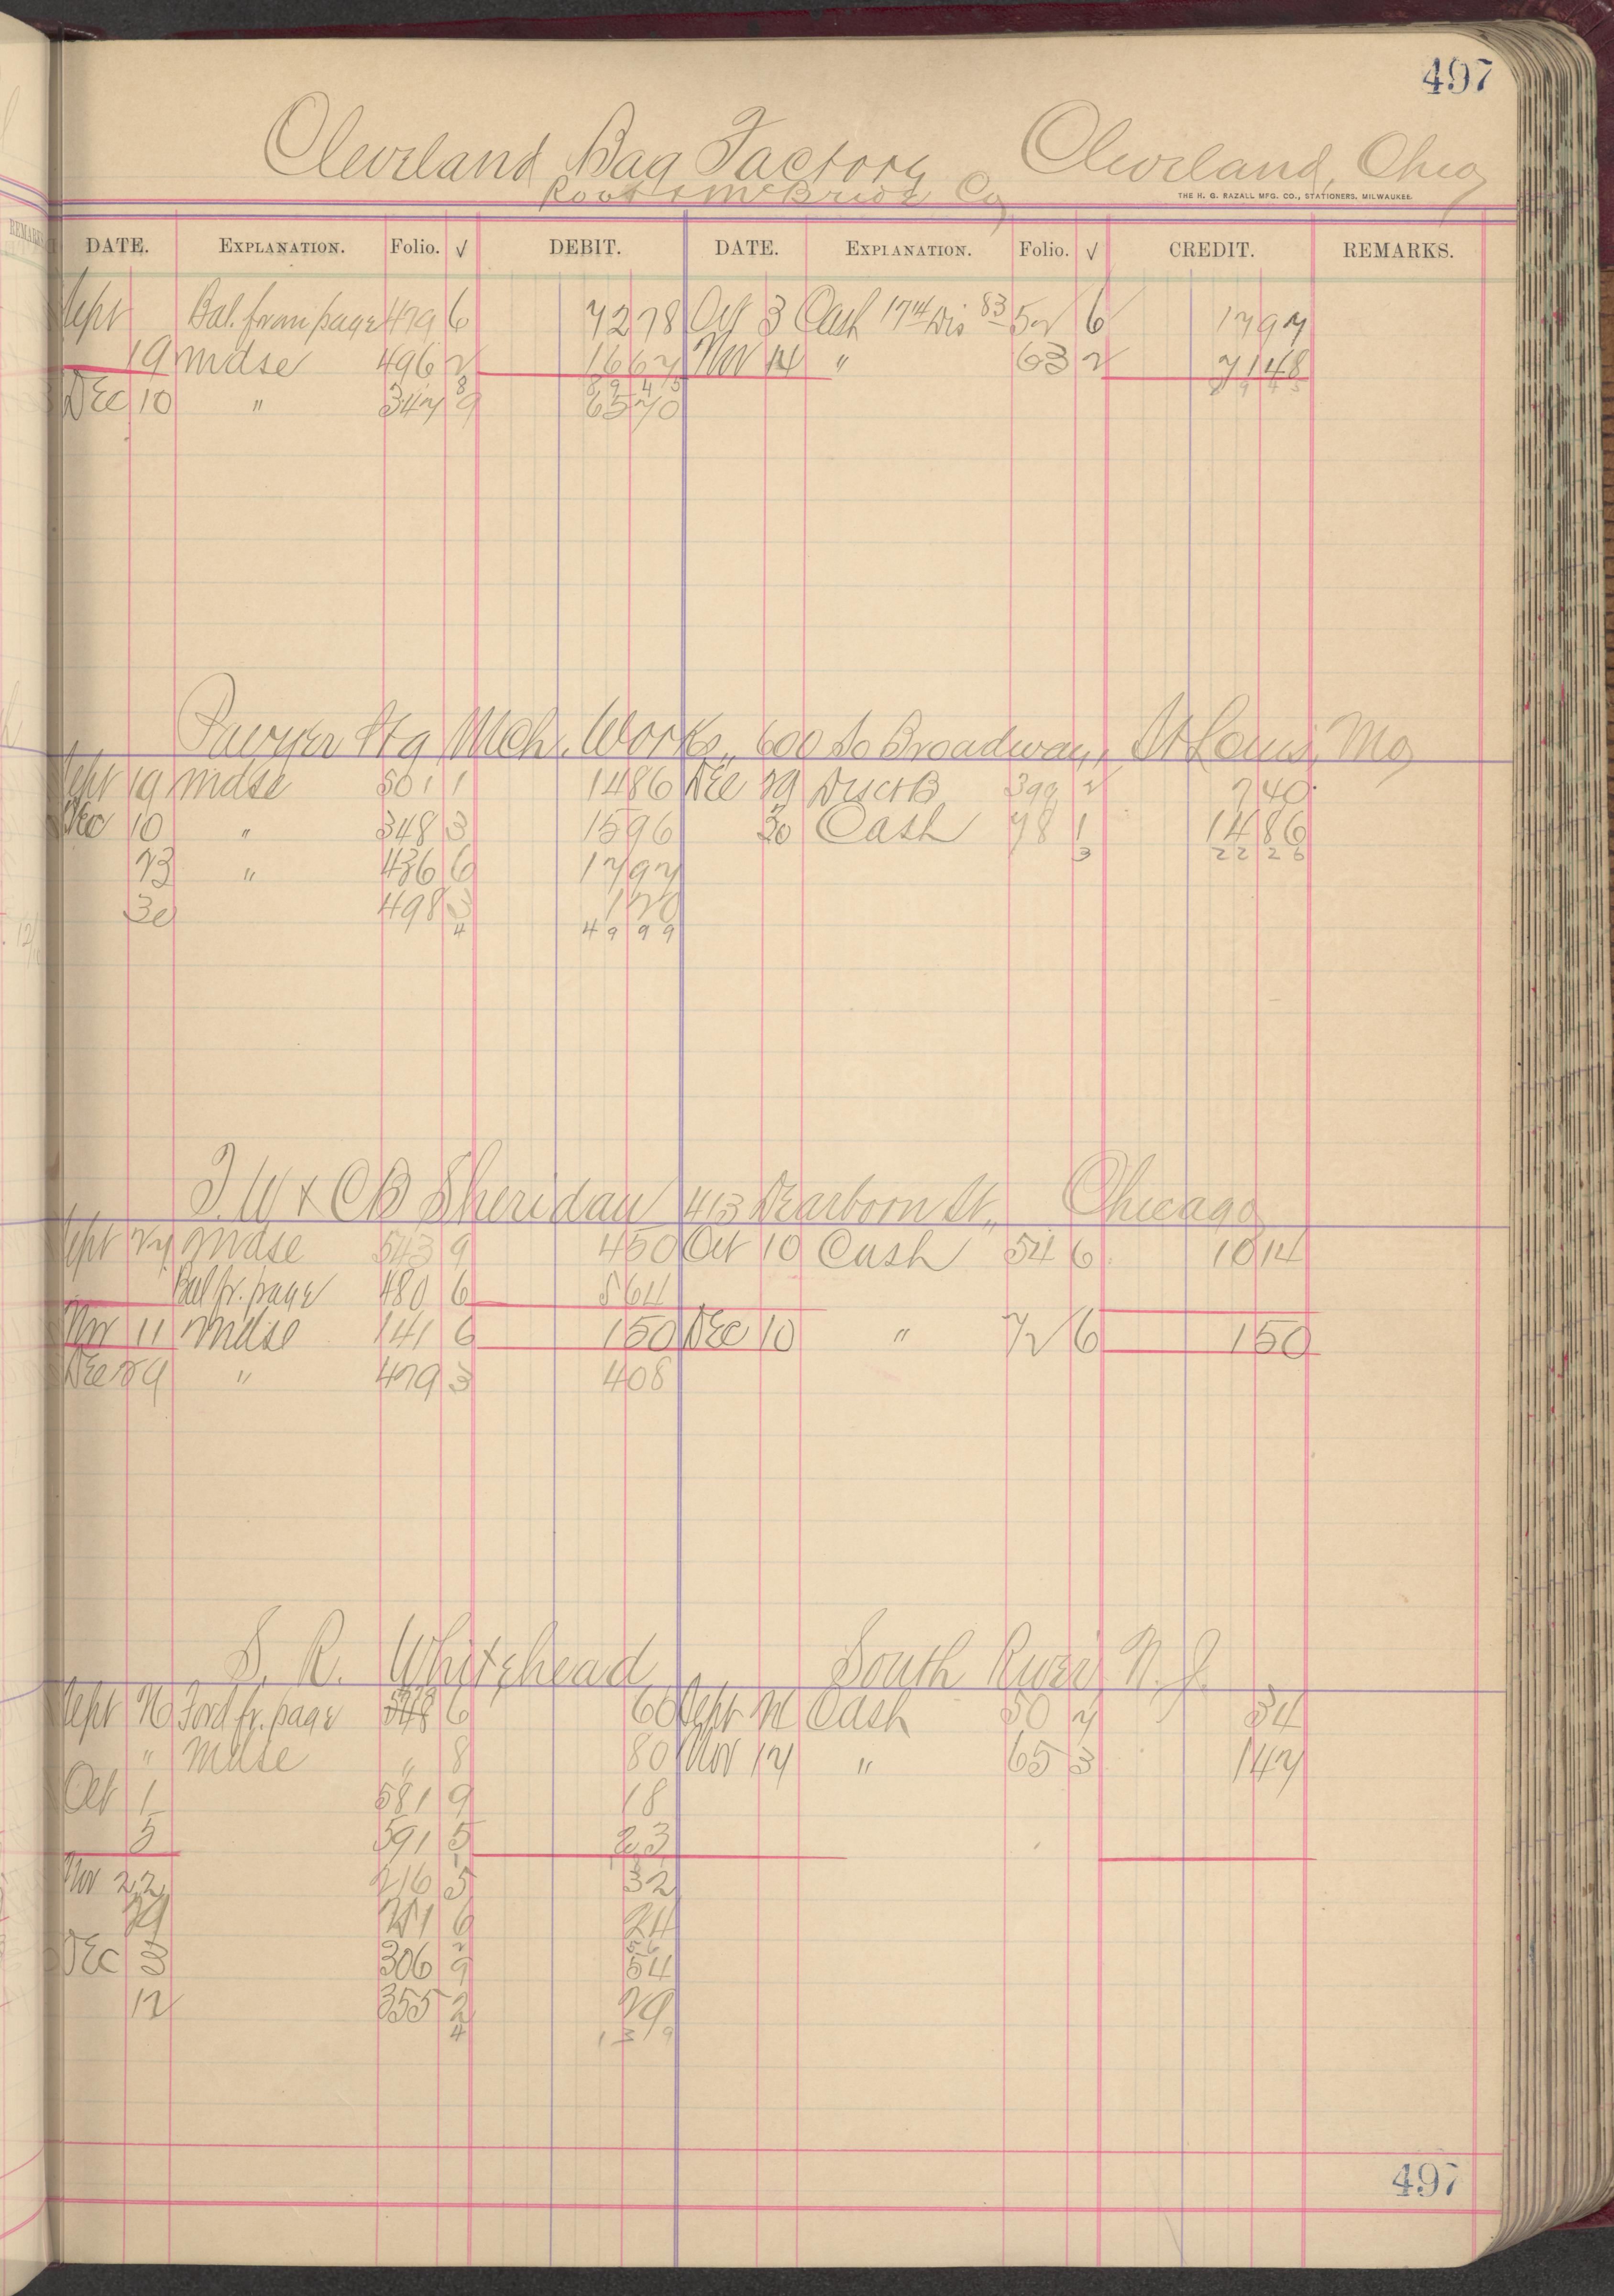 497
Cleveland Bag Factory Cleveland, Ohio
Root & McBride Co
THE H. G. RAZALL MFG. CO., STATIONERS, MILWAUKEE.
DATE. EXPLANATION. Folio. √ DEBIT. DATE. EXPLANATION. Folio. √ CREDIT. REMARKS.
Sept Bal. from page 479 6 7278 Oct 3 Cash 1714 Dis 83 52 6 1797
19 Mdse 496 2 1667 Nov 14 " 63 2 7148
8945
Dec 10 " 347 9 6570
Mch. Works, 600 So Broadway, St Louis, Mo
Sept 19 Mdse 501 1 1486 Dec 29 399 2 740
Dec 10 " 348 3 1596 30 Cash 78 1 1486
3 2226
23 " 436 6 1797
30 498 3 120
4 4999
T. W & CB Sheridan 413 Dearborn St., Chicago
Sept 27 Mdse 543 9 450 Oct 10 Cash 54 6 1014
Bal fr. page 480 6 564
Nov 11 Mdse 141 6 150 Dec 10 " 72 6 150
Dec 29 " 479 3 408
S. R. Whitehead South River N. J.
Sept 26 Ford fr. page 548 6 60 Sept 21 Cash 50 7 34
" Mdse " 8 80 Nov 17 " 65 3 147
Oct 1 581 9 18
5 591 5 23
Nov 22 216 5 32
29 271 6 24
56
Dec 3 306 9 54
12 355 2 29
4 139
497